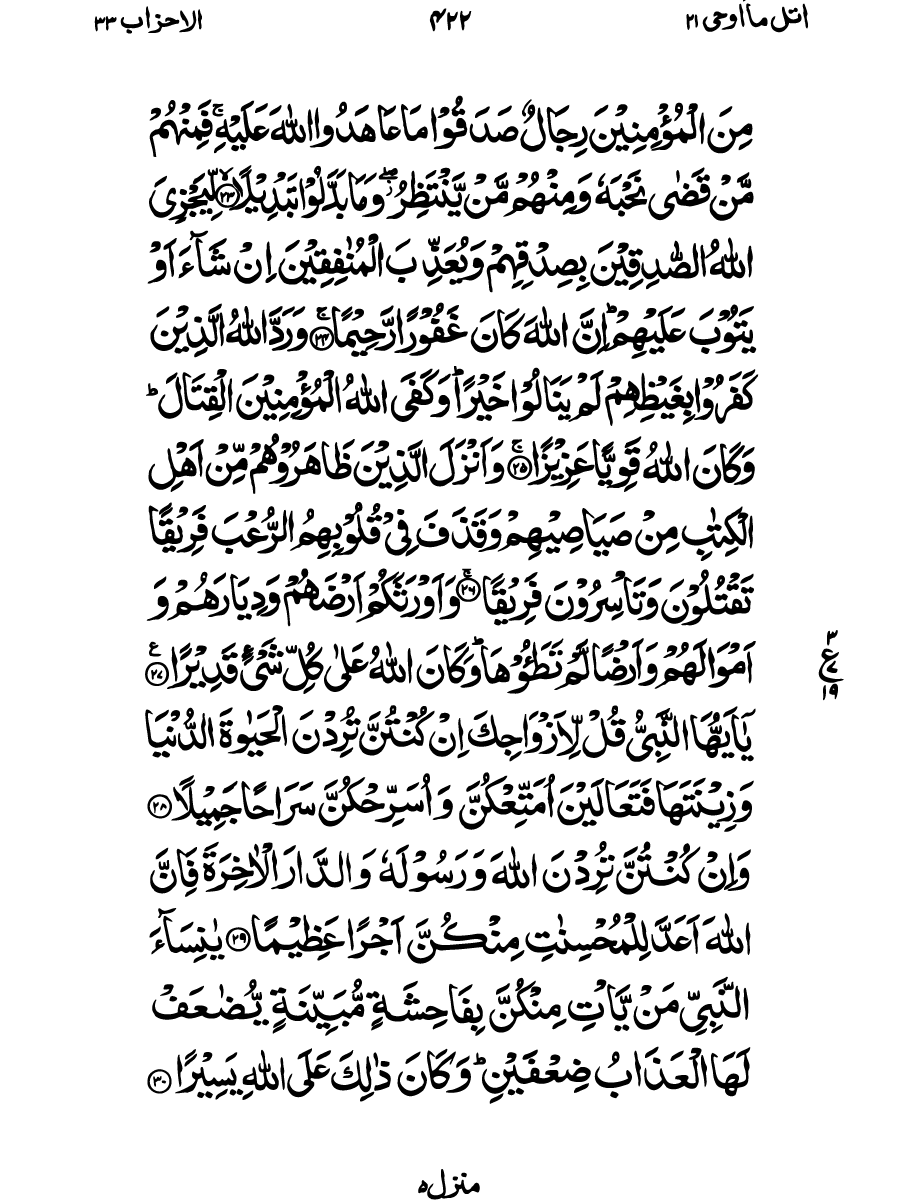 اتل مآ اوحی ۲۱ ۴۲۲ الاحزاب ۳۳
مِنَ الْمُؤْمِنِيْنَ رِجَالٌ صَدَقُوْا مَا عَاهَدُوا اللّٰهَ عَلَيْهِ ۚ فَمِنْهُمْ
مَّنْ قَضٰى نَحْبَهٗ وَمِنْهُمْ مَّنْ يَّنْتَظِرُ ۖ وَمَا بَدَّلُوْا تَبْدِيْلًا ۙ﴿۲۳﴾ لِّيَجْزِىَ
اللّٰهُ الصّٰدِقِيْنَ بِصِدْقِهِمْ وَيُعَذِّبَ الْمُنٰفِقِيْنَ اِنْ شَآءَ اَوْ
يَتُوْبَ عَلَيْهِمْ ؕ اِنَّ اللّٰهَ كَانَ غَفُوْرًا رَّحِيْمًا ۚ﴿۲۴﴾ وَرَدَّ اللّٰهُ الَّذِيْنَ
كَفَرُوْا بِغَيْظِهِمْ لَمْ يَنَالُوْا خَيْرًا ؕ وَكَفَى اللّٰهُ الْمُؤْمِنِيْنَ الْقِتَالَ ؕ
وَكَانَ اللّٰهُ قَوِيًّا عَزِيْزًا ۚ﴿۲۵﴾ وَاَنْزَلَ الَّذِيْنَ ظَاهَرُوْهُمْ مِّنْ اَهْلِ
الْكِتٰبِ مِنْ صَيَاصِيْهِمْ وَقَذَفَ فِىْ قُلُوْبِهِمُ الرُّعْبَ فَرِيْقًا
تَقْتُلُوْنَ وَتَاْسِرُوْنَ فَرِيْقًا ۚ﴿۲۶﴾ وَاَوْرَثَكُمْ اَرْضَهُمْ وَدِيَارَهُمْ وَ
اَمْوَالَهُمْ وَاَرْضًا لَّمْ تَطَـُٔوْهَا ؕ وَكَانَ اللّٰهُ عَلٰى كُلِّ شَىْءٍ قَدِيْرًا ﴿۲۷﴾ ع
۳
ع
۷
۱۹
يٰۤاَيُّهَا النَّبِىُّ قُلْ لِّاَزْوَاجِكَ اِنْ كُنْتُنَّ تُرِدْنَ الْحَيٰوةَ الدُّنْيَا
وَزِيْنَتَهَا فَتَعَالَيْنَ اُمَتِّعْكُنَّ وَاُسَرِّحْكُنَّ سَرَاحًا جَمِيْلًا ﴿۲۸﴾
وَاِنْ كُنْتُنَّ تُرِدْنَ اللّٰهَ وَرَسُوْلَهٗ وَالدَّارَ الْاٰخِرَةَ فَاِنَّ
اللّٰهَ اَعَدَّ لِلْمُحْسِنٰتِ مِنْكُنَّ اَجْرًا عَظِيْمًا ﴿۲۹﴾ يٰنِسَآءَ
النَّبِىِّ مَنْ يَّاْتِ مِنْكُنَّ بِفَاحِشَةٍ مُّبَيِّنَةٍ يُّضٰعَفْ
لَهَا الْعَذَابُ ضِعْفَيْنِ ؕ وَكَانَ ذٰلِكَ عَلَى اللّٰهِ يَسِيْرًا ﴿۳۰﴾
منزل۵